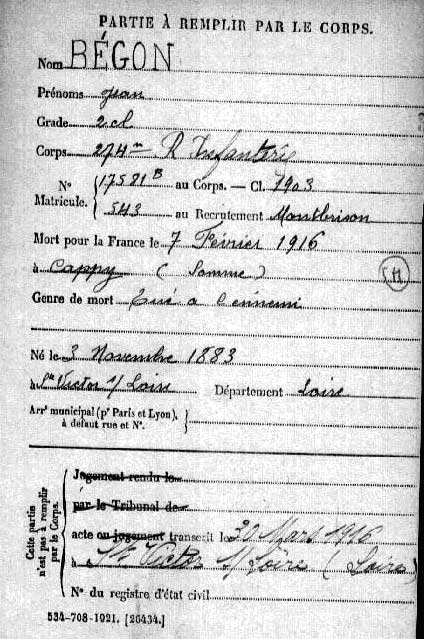 PARTIE À REMPLIR PAR LE CORPS.
Nom BÉGON
Prénoms Jean
Grade 2 cl
Corps 274me R Infanterie
No Matricule. 17581 B au Corps. — Cl. 1903
543 au Recrutement Montbrison
Mort pour la France le 7 Février 1916
à Cappy (Somme)
Genre de mort Tué a l'ennemi
Né le 3 Novembre 1883
à St Victor s/ Loire Département Loire
Arrt municipal (pr Paris et Lyon),
à défaut rue et No.
Cette partie n'est pas à remplir par le Corps.
Jugement rendu le
par le Tribunal de
acte ou jugement transcrit le 30 Mars 1916
à St Victor s/ Loire (Loire)
No du registre d'état civil
534-708-1921. [26434.]